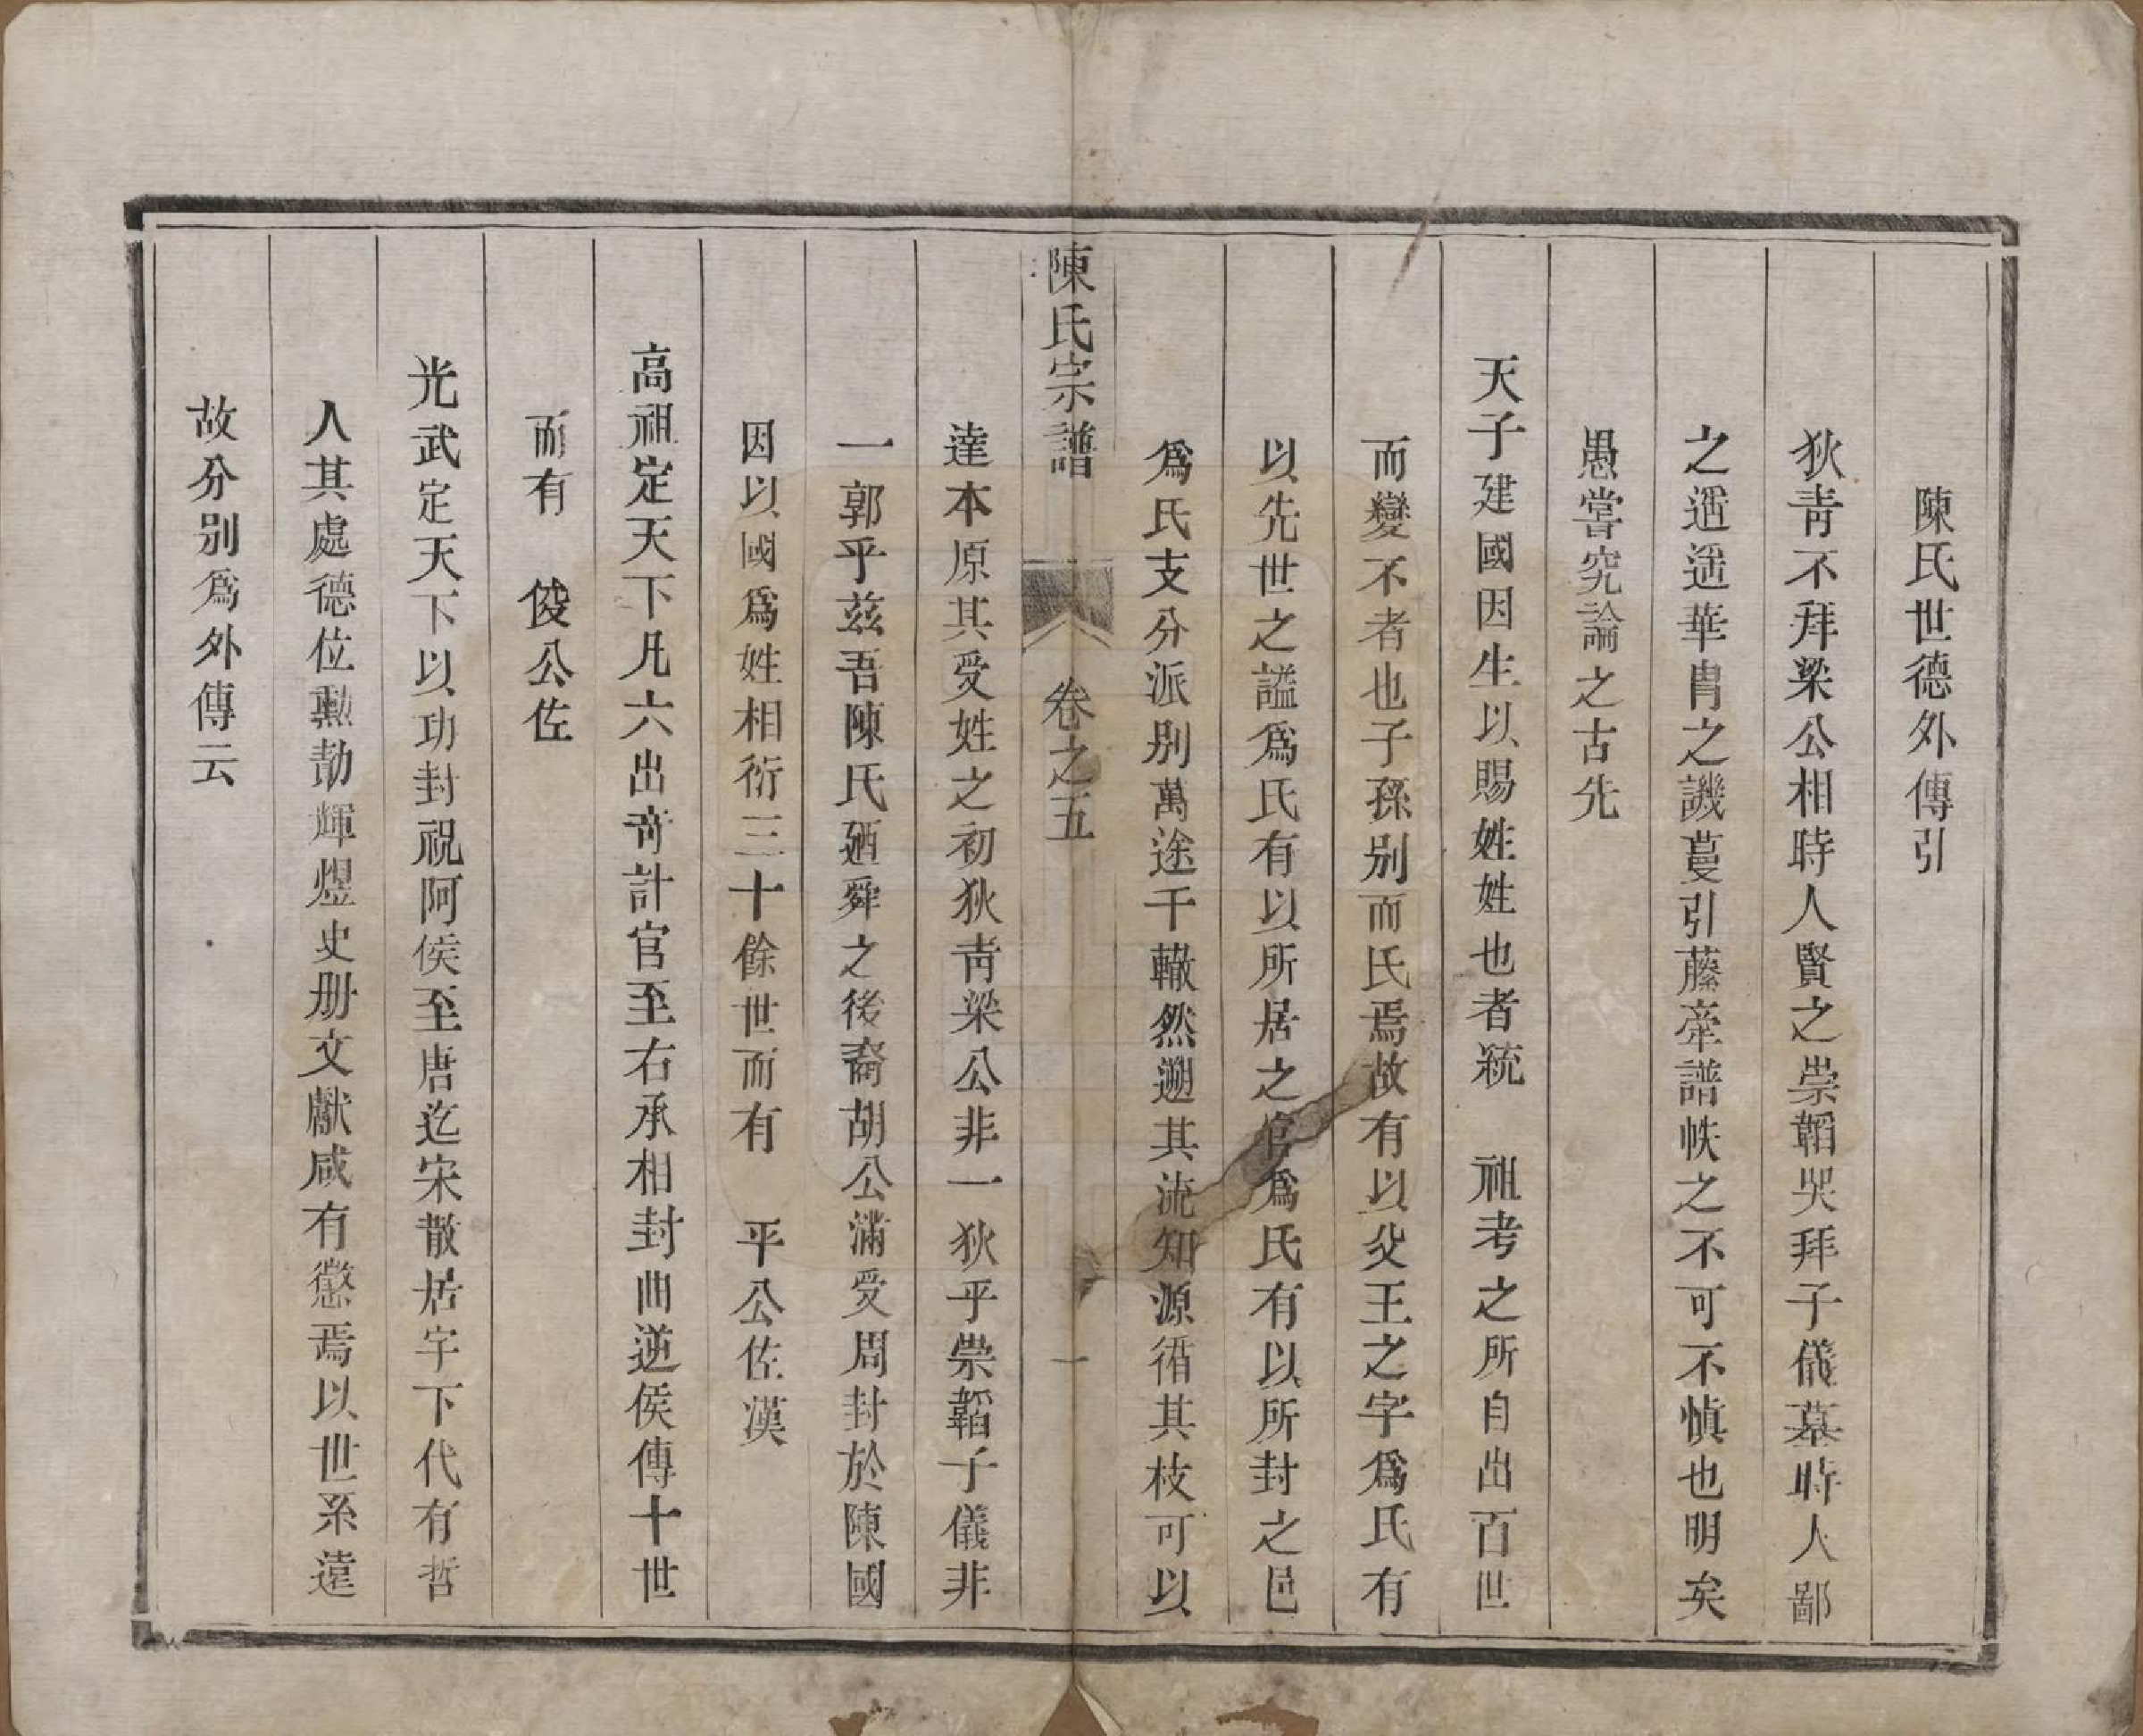 陳氏世德外傳引
狄靑不拜梁公相時人賢之崇韜哭拜子儀墓時人鄙
之遥遥華胄之譏蔓引藤牽譜帙之不可不慎也明矣
愚嘗究論之古先
天子建國因生以賜姓姓也者統　祖考之所自出百世
而變不者也子孫别而氏焉故有以父王之字爲氏有
以先世之謚爲氏有以所居之官爲氏有以所封之邑
爲氏支分派别萬途千轍然遡其流知源循其枝可以
陳氏宗譜　卷之五　一
達本原其受姓之初狄靑梁公非一狄乎崇韜子儀非
一郭乎茲吾陳氏廼舜之後裔胡公滿受周封於陳國
因以國爲姓相衍三十餘世而有　平公佐漢
高祖定天下凡六出竒計官至右承相封曲逆侯傳十世
而有　俊公佐
光武定天下以功封祝阿侯至唐迄宋散居宇下代有哲
人其處德位勳勣輝煜史册文獻咸有懲焉以世系遠
故分别爲外傳云